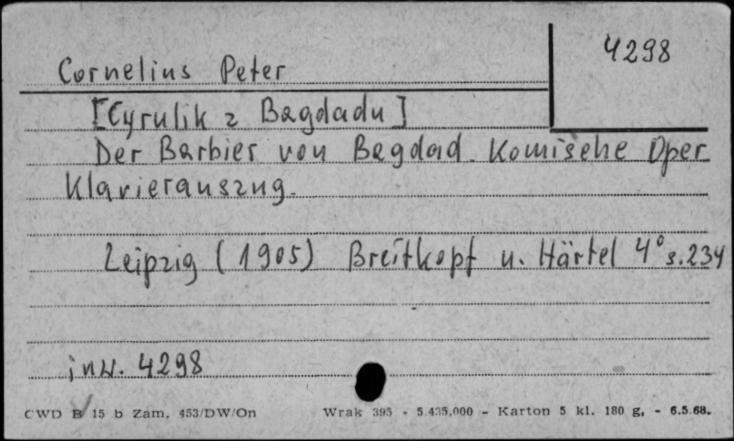 4298
Cornelius Peter
[Cyrulik z Bagdadu]
Der Barbier von Bagdad. Komisehe Oper
Klavierauszug.
Leipzig (1905) Breitkopf u. Härtel 4° s. 234
inw. 4298
CWD B/15 b Zam. 453/DW/On Wrak 395 - 5.435.000 - Karton 5 kl. 180 g. - 6.5.68.